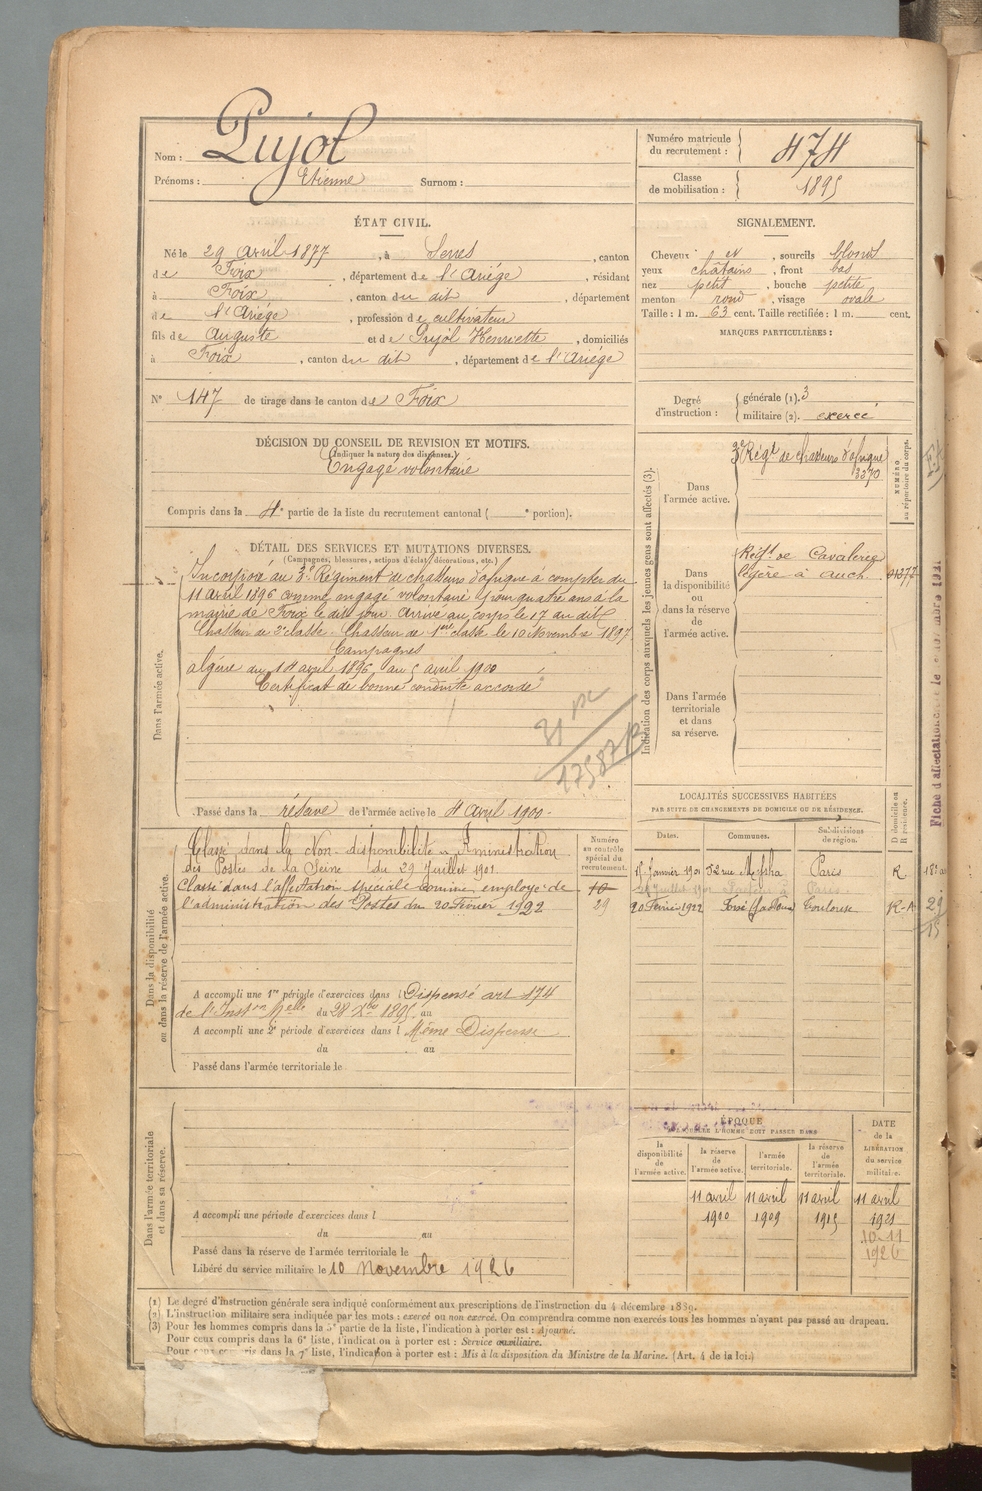 Nom : Pujol
Prénoms : Etienne Surnom :
Numéro matricule du recrutement : 474
Classe de mobilisation : 1895
ÉTAT CIVIL.
Né le 29 avril 1877, à Serres, canton
de Foix, département de l'Ariége, résidant
à Foix, canton du dit, département
de l'Ariége, profession de cultivateur
fils de Auguste et de Pujol Henriette, domiciliés
à Foix, canton du dit, département de l'Ariége
N° 147 de tirage dans le canton de Foix
SIGNALEMENT.
Cheveux et, sourcils blonds
yeux châtains, front bas
nez petit, bouche petite
menton rond, visage ovale
Taille : 1 m. 63 cent. Taille rectifiée : 1 m. cent.
MARQUES PARTICULIÈRES :
Degré d'instruction : générale (1). 3
militaire (2). exercé
DÉCISION DU CONSEIL DE REVISION ET MOTIFS.
(Indiquer la nature des dispenses.)
Engagé volontaire
Compris dans la 4e partie de la liste du recrutement cantonal ( e portion).
DÉTAIL DES SERVICES ET MUTATIONS DIVERSES.
(Campagnes, blessures, actions d'éclat, décorations, etc.)
Dans l'armée active.
Incorporé au 3e Régiment de chasseurs d'afrique à compter du
11 avril 1896 comme engagé volontaire pour quatre ans à la
mairie de Foix le dit jour. Arrivé au corps le 17 au dit
Chasseur de 2e classe. Chasseur de 1ère classe le 10 Novembre 1897
Campagnes
algérie du 14 avril 1896 au 5 avril 1900
Certificat de bonne conduite accordé
Passé dans la réserve de l'armée active le 11 Avril 1900.
Indication des corps auxquels les jeunes gens sont affectés (3).
NUMÉRO au répertoire du corps.
Dans l'armée active.
3e Régt de chasseurs d'afrique
3370
Dans la disponibilité ou dans la réserve de l'armée active.
Régt de Cavalerie
légère à auch
Dans l'armée territoriale et dans sa réserve.
Dans la disponibilité ou dans la réserve de l'armée active.
Classé dans la Non-disponibilité Administration
des Postes de la Seine du 29 Juillet 1901
Classé dans l'affectation spéciale comme employé de
l'administration des Postes du 20 Février 1922
Numéro au contrôle spécial du recrutement.
10
29
A accompli une 1re période d'exercices dans l Dispensé art 174
de l'Inston Melle du 28 Xbre 1895 au
A accompli une 2e période d'exercices dans l Même Dispense
du au
Passé dans l'armée territoriale le
LOCALITÉS SUCCESSIVES HABITÉES
PAR SUITE DE CHANGEMENTS DE DOMICILE OU DE RÉSIDENCE.
Dates. Communes. Subdivisions de région. D domicile ou R résidence.
Janvier 1901 52 rue Paris R
20 Février 1922 Toulouse R-A
Dans l'armée territoriale et dans sa réserve.
A accompli une période d'exercices dans l
du au
Passé dans la réserve de l'armée territoriale le
Libéré du service militaire le 10 Novembre 1926
ÉPOQUE
À LAQUELLE L'HOMME DOIT PASSER DANS
la disponibilité de l'armée active.
la réserve de l'armée active.
l'armée territoriale.
la réserve de l'armée territoriale.
DATE de la LIBÉRATION du service militaire.
11 avril 11 avril 11 avril 11 avril
1900 1909 1915 1921
10-11
1926
(1) Le degré d'instruction générale sera indiqué conformément aux prescriptions de l'instruction du 4 décembre 1889.
(2) L'instruction militaire sera indiquée par les mots : exercé ou non exercé. On comprendra comme non exercés tous les hommes n'ayant pas passé au drapeau.
(3) Pour les hommes compris dans la 5e partie de la liste, l'indication à porter est : Ajourné.
Pour ceux compris dans la 6e liste, l'indication à porter est : Service auxiliaire.
Pour ceux compris dans la 7e liste, l'indication à porter est : Mis à la disposition du Ministre de la Marine. (Art. 4 de la loi.)